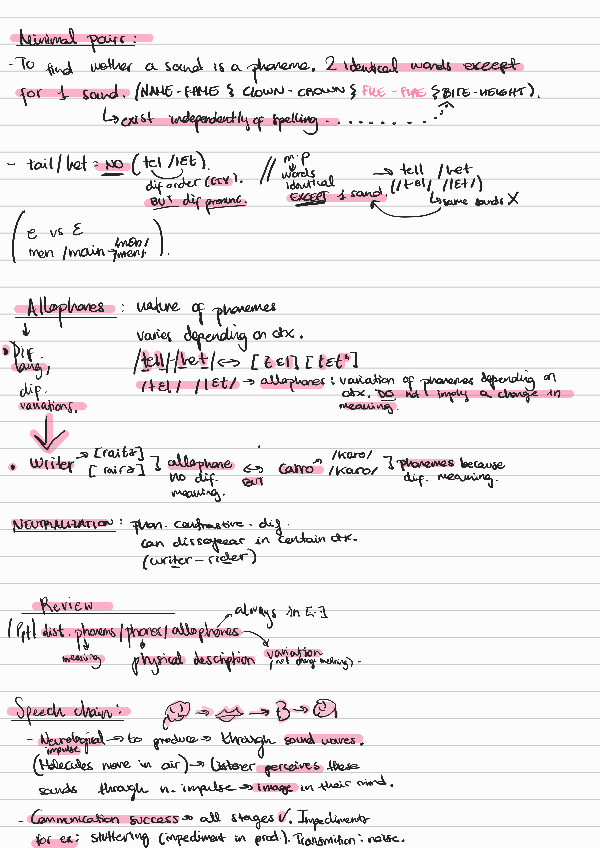 Minimal pairs:
- To find wether a sound is a phoneme. 2 identical words except
for 1 sound. (NAME-FAME & CLOWN-CROWN & FILE-FINE & BITE-HEIGHT).
↳ exist independently of spelling
- tail/let = NO (tɛl /lɛt). // m.p → tell /let
words
dif order (CTX). identical (/tɛl/ /lɛt/)
BUT dif pronunc. EXCEPT 1 sound. ↳ same sounds X
( e vs ɛ
men /main → /mɛn/
/meɪn/ ).
Allophones : nature of phonemes
↓ varies depending on ctx.
• Dif. /tell/-/let/ ↔ [tɛl] [lɛtʰ]
lang, /tɛl/ /lɛt/ → allophones: variation of phonemes depending on
dif. ctx. DO not imply a change in
variations. meaning.
• Writer → [raitɚ] ] allophone ↔ carro → /karo/ ] phonemes because
[rairɚ] no dif. BUT /karo/ dif. meaning.
meaning.
NEUTRALIZATION : phon. contrastive. dif.
can dissapear in centain ctx.
(writer - rider)
Review → always in [.]
(Ppt) dist. phonems/phones/allophones
↓ ↓ variation
meaning physical desciption
Speech chain:
- Neurological → to produce → through sound waves.
impulse
(Molecules move in air) → Listener perceives these
sounds through n. impulse → image in their mind.
- Communication success → all stages ✓. Impediments
for ex: stuttering (impediment in prod.). Transmition: noise.